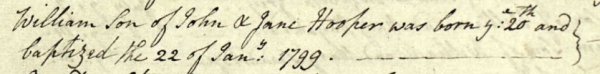 William Son of John & Jane Hooper was born ye: 20th and
baptized the 22 of Jany: 1799.